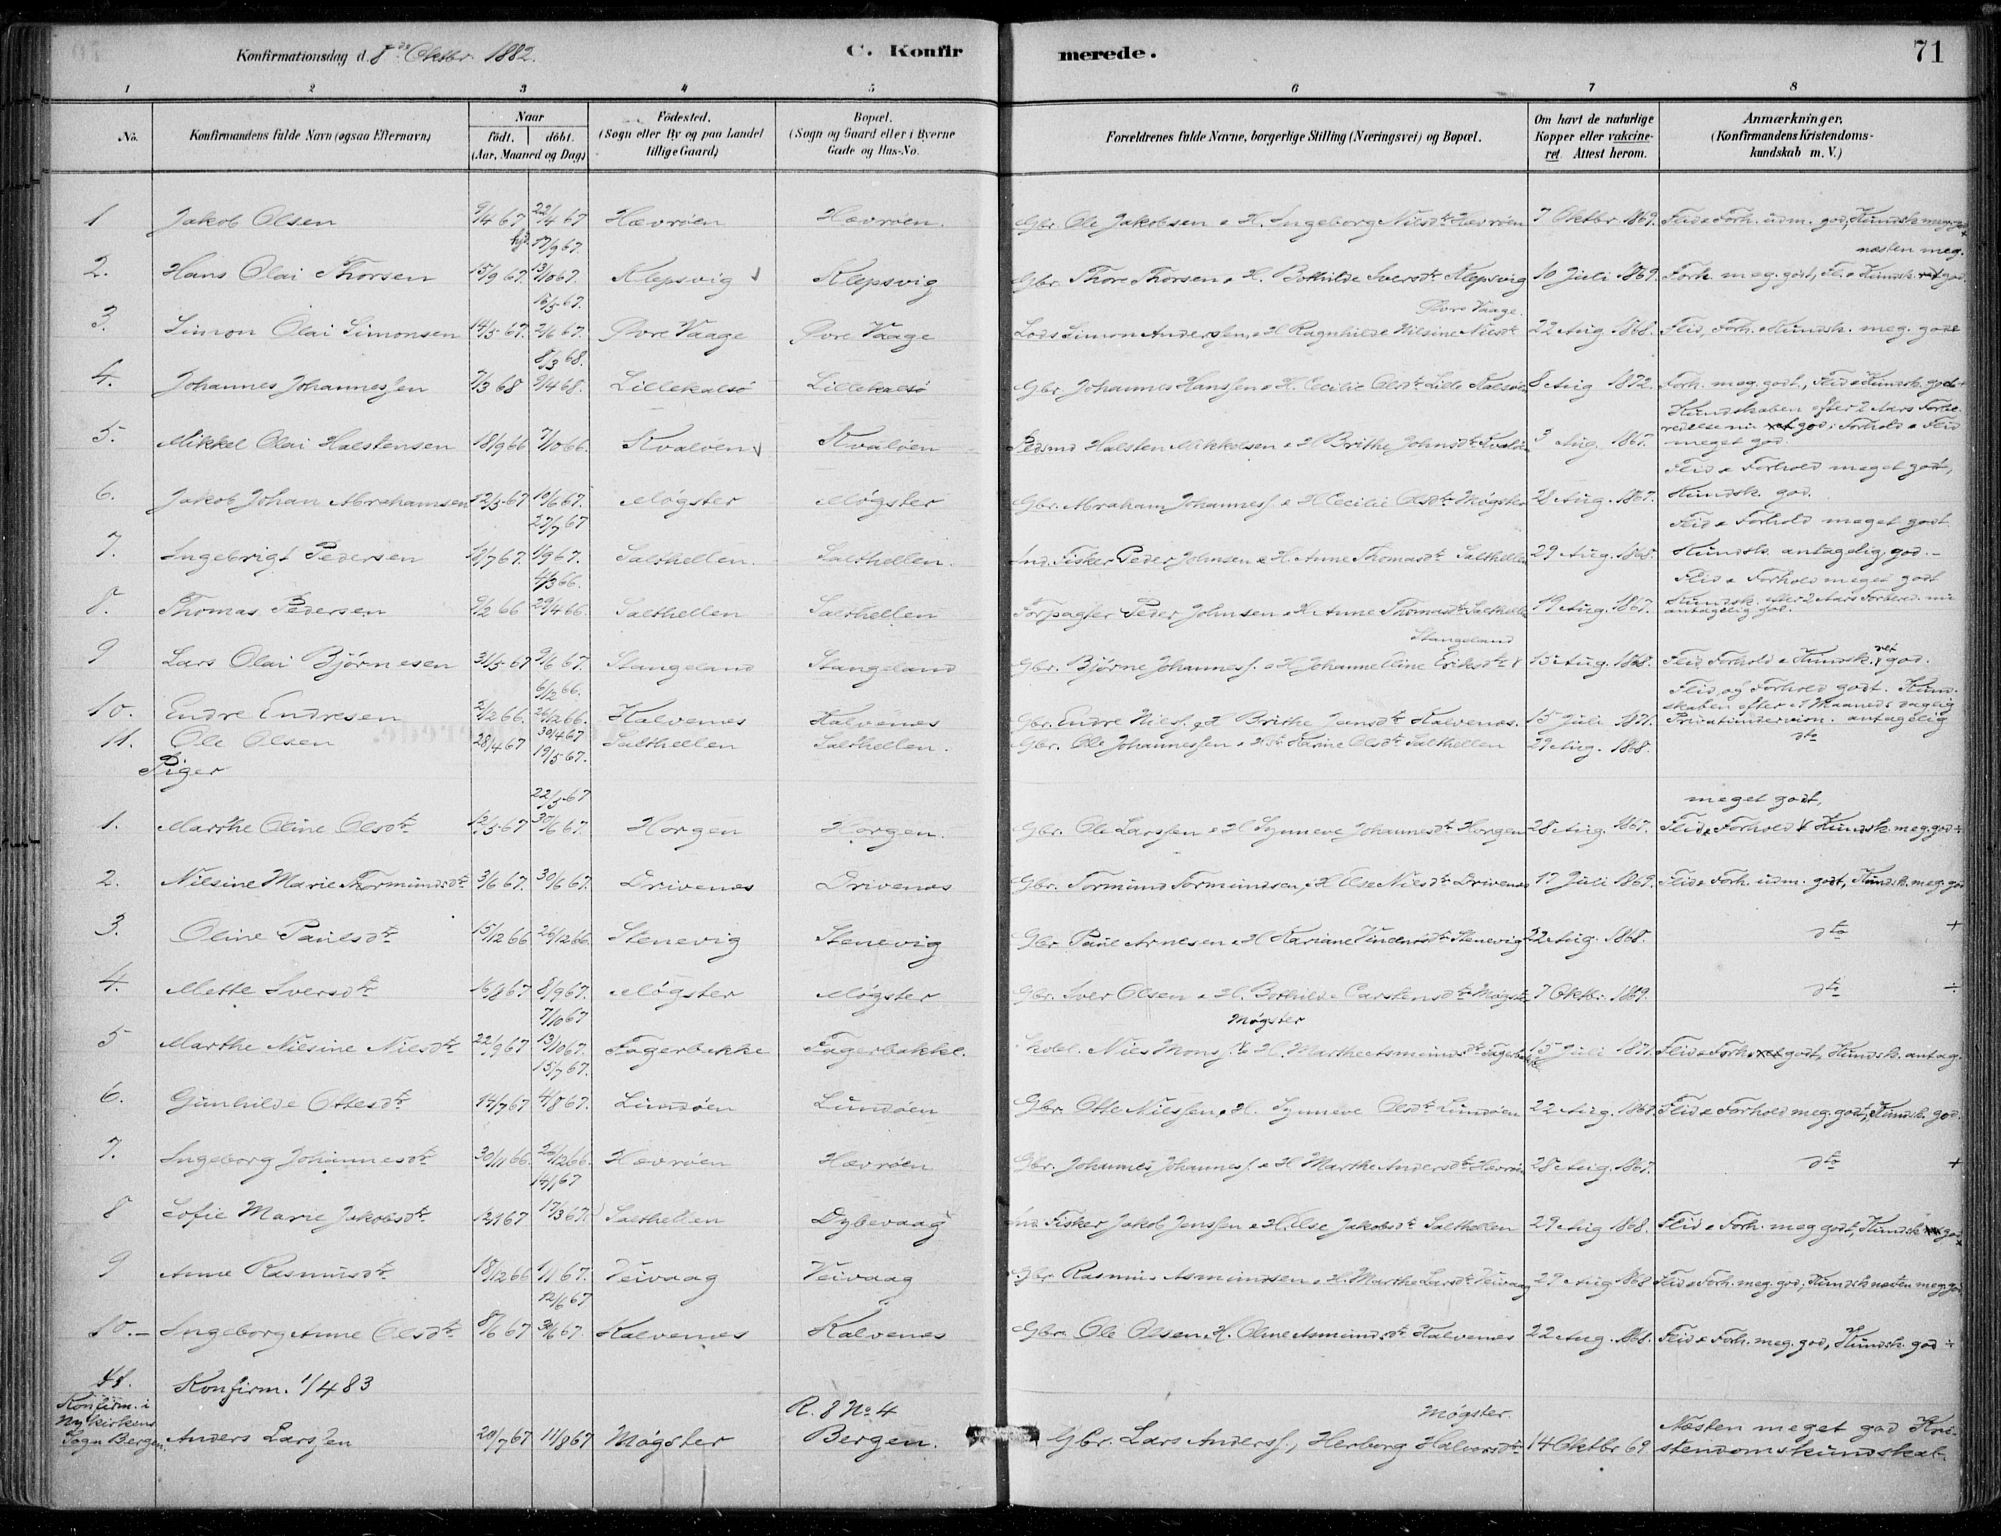 Konfirmationsdag d. 8de Oktbr. 1882.
C. Konfirmerede.
71
1 2 3 4 5 6 7 8
No.
Konfirmandens fulde Navn (ogsaa Efternavn)
Naar født. døbt. (Aar, Maaned og Dag)
Fødested. (Sogn eller By og paa Landet tillige Gaard)
Bopæl. (Sogn og Gaard eller i Byerne Gade og Hus-No.
Forældrenes fulde Navne, borgerlige Stilling (Næringsvei) og Bopæl.
Om havt de naturlige Kopper eller vakcineret. Attest herom.
Anmærkninger. (Konfirmandens Kristendomskundskab m. V.)
1 Jakob Olsen 9/4 67 22/4 67 Hævrøen Hævrøen. Gbr. Ole Jakobsen & H. Ingeborg Nilsdtr Hævrøen 7 Oktbr 1869. Flid & Forh. udm. god, Kundsk. meg. god +
2. Hans Olai Thorsen 15/9 67. 17/9 67. 13/10 67. Klepsvig Klepsvig Gbr. Thore Thorsen & H. Bothilde Iversdtr Klepsvig 10 Juli 1869. Forh. meg. godt, Fl. & Kundsk. næsten meg. god.
3. Simon Olai Simonsen 14/5 67. 16/5 67. 2/6 67. Øvre Vaage Øvre Vaage Lods Simon Anderssen & H Ragnhilde Nilsine Nilsdtr Øvre Vaage. 22 Aug. 1868. Flid, Forh. & Kundsk. meg. gode
4. Johannes Johannessen 7/3 68 8/3 68. 9/4 68. Lillekalsø Lillekalsø Gbr. Johannes Hanssen & H. Cecilie Olsdtr Lille Kalsøen 8 Aug 1872. Forh. meg. godt, Flid & Kundsk. god
5. Mikkel Olai Halstensen 18/9 66 7/10 66. Kvaløen Kvaløen Pldsmd Halsten Mikkelsen & H Brithe Johnsdtr Kvaløen 3 Aug. 1867. Kundskaben efter 2 Aars Forberedelse god; Forhold & Flid meget god.
6. Jakob Johan Abrahamsen 12/5 67 10/6 67. Møgster Møgster Gbr. Abraham Johanness. & H Cecilie Olsdtr Møgster 28 Aug. 1867. Flid & Forhold meget godt, Kundsk. god.
7. Ingebrigt Pedersen 18/7 67. 27/7 67 1/9 67. Salthellen. Salthellen. Ind. Fisker Peder Johnsen & H. Anne Thomasdtr Salthellen 29 Aug. 1868. Flid & Forhold meget godt. Kundsk. antagelig god.
8. Thomas Pedersen 9/2 66 4/3 66. 29/4 66. Salthellen Salthellen Forpagter Peder Johnsen & H. Anne Thomasdtr Salthellen 19 Aug. 1867. Flid & Forhold meget godt Kundsk. efter 2 Aars Forbered. antagelig
9 Lars Olai Bjørnesen 31/5 67 9/6 67. Stangeland Stangeland Gbr. Bjørne Johanness. & H Johanne Oline Eriksdtr Stangeland 15 Aug. 1868. Flid Forhold & Kundsk. ret god.
10. Endre Endresen 2/12 66. 6/12 66. 26/12 66. Kalvenes Kalvenes Gbr. Endre Nilss. & H Brithe Jansdtr Kalvenes. 15 Juli 1871. Flid og Forhold godt. Kundskaben efter Maaneds daglig Privatundervisn. antagelig
11. Ole Olsen 28/4 67 30/4 67 19/5 67. Salthellen Salthellen. Gbr. Ole Johannessen & H. Karine Olsdtr Salthellen 29 Aug. 1868. dto
Piger
1. Marthe Oline Olsdtr 12/5 67 22/5 67 30/6 67. Horgen Horgen. Gbr. Ole Larssen & H Synneve Johannesdtr Horgen 28 Aug. 1867. Flid & Forhold meget godt, Kundsk. meg. god ÷
2. Nilsine Marie Thormundsdtr 3/6 67. 30/6 67. Drivenes Drivenes Gbr. Tormund Tormundsen, & H Else Nilsdtr Drivenes 17 Juli 1869. Flid & Forh. udm. godt, Kundsk. meg. god
3. Oline Paulsdtr 15/12 66 26/12 66. Stenevig Stenevig Gbr. Paul Arnesen & H Kariane Stenevig 22 Aug. 1868. dto +
4. Mette Iversdtr 16/8 67 8/9 67. Møgster Møgster Gbr. Iver Olsen & H. Bothilde Carstensdtr Møgster 7 Oktbr. 1869. dto ÷
5 Marthe Nilsine Nilsdtr 22/9 67 7/10 67 13/10 67. Fagerbakke Fagerbakke. Skoll. Nils Monss. Møgster & H. Marthe Asmundsdtr Fagerbakke 15 Juli 1871. Flid & Forh. godt, Kundsk. antag.
6. Gunhilde Ottesdtr 14/7 67 15/7 67. 4/8 67. Lundøen Lundøen Gbr. Otte Nilssen, & H. Synneve Olsdtr Lundøen 22 Aug. 1868. Flid & Forhold meg. godt, Kundsk. god.
7. Ingeborg Johannesdtr 30/11 66. 26/12 66. Hævrøen Hævrøen. Gbr. Johannes Johanness. & H Marthe Andersdtr Hævrøen 28 Aug. 1867. dto +
8 Sofie Marie Jakobsdtr 12/1 67 14/1 67 17/3 67. Salthellen Dybevaag Ind. Fisker Jakob Jenssen & H. Else Jakobsdtr Salthellen 29 Aug 1868. Flid & Forh. meg godt, Kundsk god
9 Anne Rasmusdtr 18/12 66 1/1 67. Veivaag Veivaag Gbr. Rasmus Asmundsen & H. Marthe Larsdtr Veivaag 29 Aug 1868 Flid & Forh. meg. god, Kundsk næsten meg. god
10.- Ingeborg Anne Olsdtr. 8/6 67 12/6 67 30/6 67. Kalvenes Kalvenes Gbr. Ole Olsen & H. Oline Asmundsdtr Kalvenes 22 Aug. 1868. Flid & Forh. meg. god, Kundsk. god ÷
11. Konfirm. 1/4 83
Konfirm. i Nykirkens Sogn Bergen.
Anders Larssen 20/7 67 11/8 67 Møgster R. 8 No 4 Bergen. Gbr. Lars Anderss., Herborg Halvorsdtr Møgster. 14 Oktbr 69. Næsten meget god Kristendomskundskab.